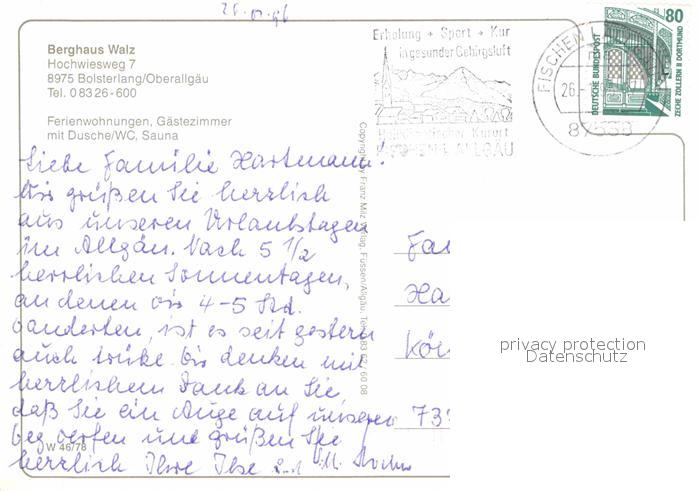 26.01.96
Berghaus Walz
Hochwiesweg 7
8975 Bolsterlang/Oberallgäu
Tel. 0 83 26 - 600
Ferienwohnungen, Gästezimmer
mit Dusche/WC, Sauna
Liebe Familie Hartmann!
Wir grüßen Sie herzlich
aus unseren Urlaubstagen
im Allgäu. Nach 5 1/2
herrlichen Sonnentagen,
an denen wir 4-5 Std.
wanderten, ist es seit gestern
auch trübe. Wir denken mit
herzlichem Dank an Sie
daß Sie ein Auge auf unseren
Weg werfen und grüßen Sie
herzlich Ihre Ilse u.
W 46/78
Copyright by Franz Milz Verlag, Füssen/Allgäu, Telefon 0 83 62/60 08
Erholung + Sport + Kur
in gesunder Gebirgsluft
Heilklimatischer Kurort
FISCHEN I. ALLGÄU
FISCHEN I. ALLGÄU
26.
87538
80
DEUTSCHE BUNDESPOST
ZECHE ZOLLERN II DORTMUND
Fa
Ha
Kön
73
privacy protection
Datenschutz